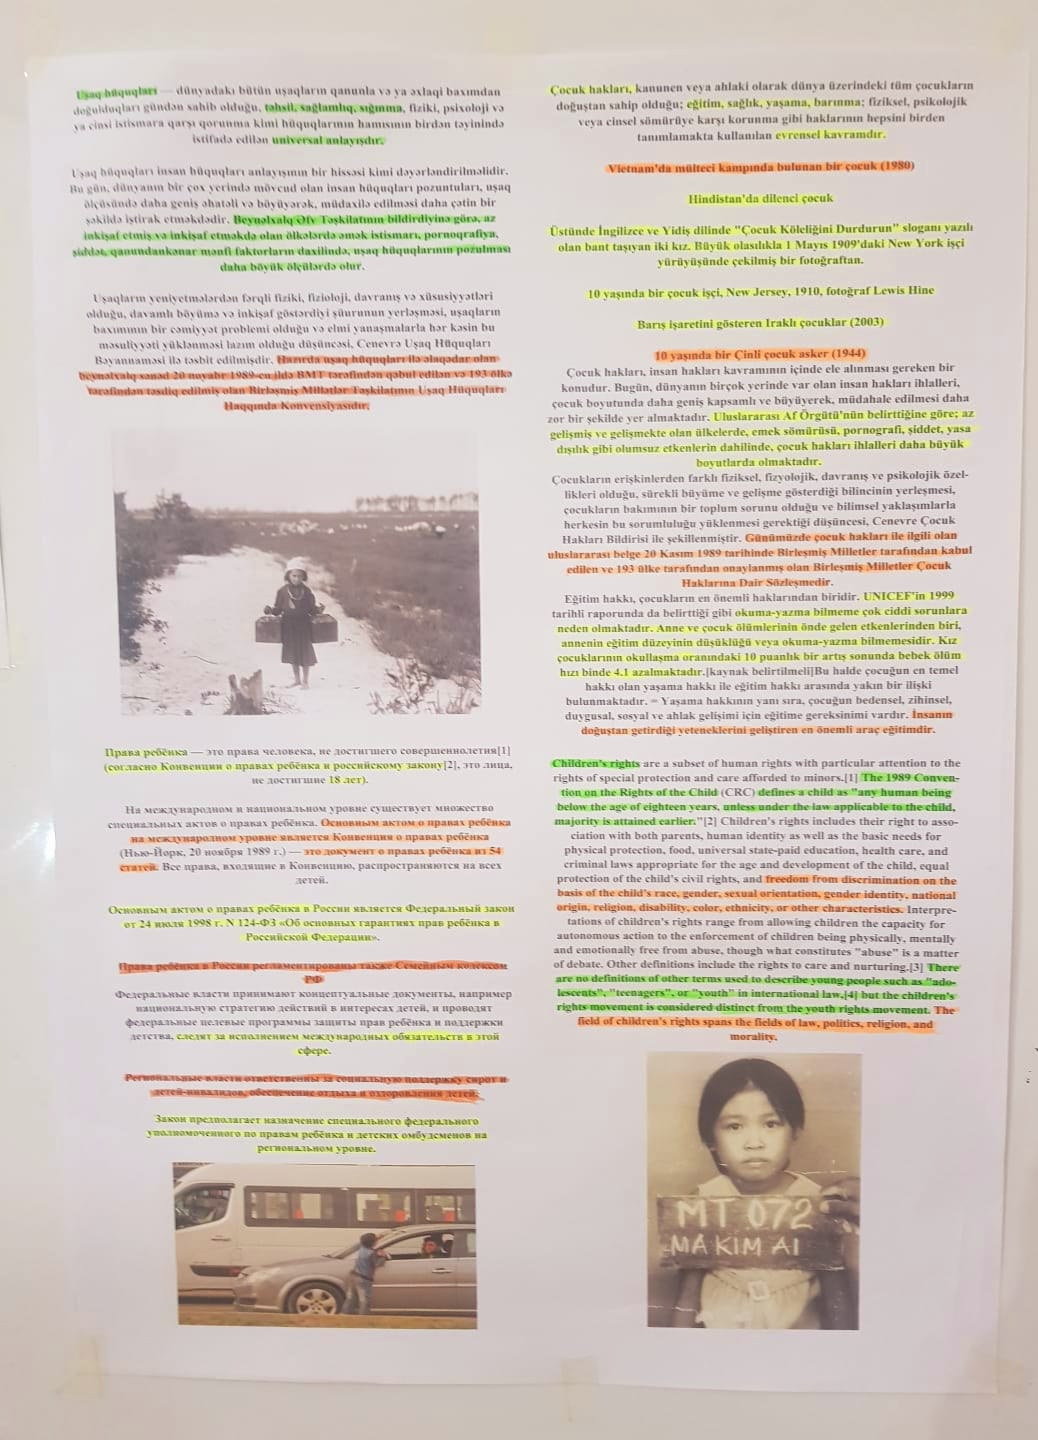 Uşaq hüquqları — dünyadakı bütün uşaqların qanunla və ya əxlaqi baxımdan
doğulduqları gündən sahib olduğu, təhsil, sağlamlıq, sığınma, fiziki, psixoloji və
ya cinsi istismara qarşı qorunma kimi hüquqlarının hamısının birdən təyinində
istifadə edilən universal anlayışdır.
Uşaq hüquqları insan hüquqları anlayışının bir hissəsi kimi dəyərləndirilməlidir.
Bu gün, dünyanın bir çox yerində mövcud olan insan hüquqları pozuntuları, uşaq
ölçüsündə daha geniş əhatəli və böyüyərək, müdaxilə edilməsi daha çətin bir
şəkildə iştirak etməkdədir. Beynəlxalq Əfv Təşkilatının bildirdiyinə görə, az
inkişaf etmiş və inkişaf etməkdə olan ölkələrdə əmək istisması, pornoqrafiya,
şiddət, qanundankənar mənfi faktorların daxilində, uşaq hüquqlarının pozulması
daha böyük ölçülərdə olur.
Uşaqların yeniyetmələrdən fərqli fiziki, fizioloji, davranış və xüsusiyyətləri
olduğu, davamlı böyümə və inkişaf göstərdiyi şüurunun yerləşməsi, uşaqların
baxımının bir cəmiyyət problemi olduğu və elmi yanaşmalarla hər kəsin bu
məsuliyyəti yüklənməsi lazım olduğu düşüncəsi, Cenevrə Uşaq Hüquqları
Bəyannaməsi ilə təsbit edilmişdir. Hazırda uşaq hüquqları ilə əlaqədar olan
beynəlxalq sənəd 20 noyabr 1989-cu ildə BMT tərəfindən qəbul edilən və 193 ölkə
tərəfindən təsdiq edilmiş olan Birləşmiş Millətlər Təşkilatının Uşaq Hüquqları
Haqqında Konvensiyasıdır.
Права ребёнка — это права человека, не достигшего совершеннолетия[1]
(согласно Конвенции о правах ребёнка и российскому закону[2], это лица,
не достигшие 18 лет).
На международном и национальном уровне существует множество
специальных актов о правах ребёнка. Основным актом о правах ребёнка
на международном уровне является Конвенция о правах ребёнка
(Нью-Йорк, 20 ноября 1989 г.) — это документ о правах ребёнка из 54
статей. Все права, входящие в Конвенцию, распространяются на всех
детей.
Основным актом о правах ребёнка в России является Федеральный закон
от 24 июля 1998 г. N 124-ФЗ «Об основных гарантиях прав ребёнка в
Российской Федерации».
Права ребёнка в России регламентированы также Семейным кодексом
РФ
Федеральные власти принимают концептуальные документы, например
национальную стратегию действий в интересах детей, и проводят
федеральные целевые программы защиты прав ребёнка и поддержки
детства, следят за исполнением международных обязательств в этой
сфере.
Региональные власти ответственны за социальную поддержку сирот и
детей-инвалидов, обеспечение отдыха и оздоровления детей.
Закон предполагает назначение специального федерального
уполномоченного по правам ребёнка и детских омбудсменов на
региональном уровне.
Çocuk hakları, kanunen veya ahlaki olarak dünya üzerindeki tüm çocukların
doğuştan sahip olduğu; eğitim, sağlık, yaşama, barınma; fiziksel, psikolojik
veya cinsel sömürüye karşı korunma gibi haklarının hepsini birden
tanımlamakta kullanılan evrensel kavramdır.
Vietnam'da mülteci kampında bulunan bir çocuk (1980)
Hindistan'da dilenci çocuk
Üstünde İngilizce ve Yidiş dilinde "Çocuk Köleliğini Durdurun" sloganı yazılı
olan bant taşıyan iki kız. Büyük olasılıkla 1 Mayıs 1909'daki New York işçi
yürüyüşünde çekilmiş bir fotoğraftan.
10 yaşında bir çocuk işçi, New Jersey, 1910, fotoğraf Lewis Hine
Barış işaretini gösteren Iraklı çocuklar (2003)
10 yaşında bir Çinli çocuk asker (1944)
Çocuk hakları, insan hakları kavramının içinde ele alınması gereken bir
konudur. Bugün, dünyanın birçok yerinde var olan insan hakları ihlalleri,
çocuk boyutunda daha geniş kapsamlı ve büyüyerek, müdahale edilmesi daha
zor bir şekilde yer almaktadır. Uluslararası Af Örgütü'nün belirttiğine göre; az
gelişmiş ve gelişmekte olan ülkelerde, emek sömürüsü, pornografi, şiddet, yasa
dışılık gibi olumsuz etkenlerin dahilinde, çocuk hakları ihlalleri daha büyük
boyutlarda olmaktadır.
Çocukların erişkinlerden farklı fiziksel, fizyolojik, davranış ve psikolojik özel-
likleri olduğu, sürekli büyüme ve gelişme gösterdiği bilincinin yerleşmesi,
çocukların bakımının bir toplum sorunu olduğu ve bilimsel yaklaşımlarla
herkesin bu sorumluluğu yüklenmesi gerektiği düşüncesi, Cenevre Çocuk
Hakları Bildirisi ile şekillenmiştir. Günümüzde çocuk hakları ile ilgili olan
uluslararası belge 20 Kasım 1989 tarihinde Birleşmiş Milletler tarafından kabul
edilen ve 193 ülke tarafından onaylanmış olan Birleşmiş Milletler Çocuk
Haklarına Dair Sözleşmedir.
Eğitim hakkı, çocukların en önemli haklarından biridir. UNICEF'in 1999
tarihli raporunda da belirttiği gibi okuma-yazma bilmeme çok ciddi sorunlara
neden olmaktadır. Anne ve çocuk ölümlerinin önde gelen etkenlerinden biri,
annenin eğitim düzeyinin düşüklüğü veya okuma-yazma bilmemesidir. Kız
çocuklarının okullaşma oranındaki 10 puanlık bir artış sonunda bebek ölüm
hızı binde 4.1 azalmaktadır.[kaynak belirtilmeli]Bu halde çocuğun en temel
hakkı olan yaşama hakkı ile eğitim hakkı arasında yakın bir ilişki
bulunmaktadır. = Yaşama hakkının yanı sıra, çocuğun bedensel, zihinsel,
duygusal, sosyal ve ahlak gelişimi için eğitime gereksinimi vardır. İnsanın
doğuştan getirdiği yeteneklerini geliştiren en önemli araç eğitimdir.
Children's rights are a subset of human rights with particular attention to the
rights of special protection and care afforded to minors.[1] The 1989 Conven-
tion on the Rights of the Child (CRC) defines a child as "any human being
below the age of eighteen years, unless under the law applicable to the child,
majority is attained earlier."[2] Children's rights includes their right to asso-
ciation with both parents, human identity as well as the basic needs for
physical protection, food, universal state-paid education, health care, and
criminal laws appropriate for the age and development of the child, equal
protection of the child's civil rights, and freedom from discrimination on the
basis of the child's race, gender, sexual orientation, gender identity, national
origin, religion, disability, color, ethnicity, or other characteristics. Interpre-
tations of children's rights range from allowing children the capacity for
autonomous action to the enforcement of children being physically, mentally
and emotionally free from abuse, though what constitutes "abuse" is a matter
of debate. Other definitions include the rights to care and nurturing.[3] There
are no definitions of other terms used to describe young people such as "ado-
lescents", "teenagers", or "youth" in international law,[4] but the children's
rights movement is considered distinct from the youth rights movement. The
field of children's rights spans the fields of law, politics, religion, and
morality.
MT 072
MA KIM AI